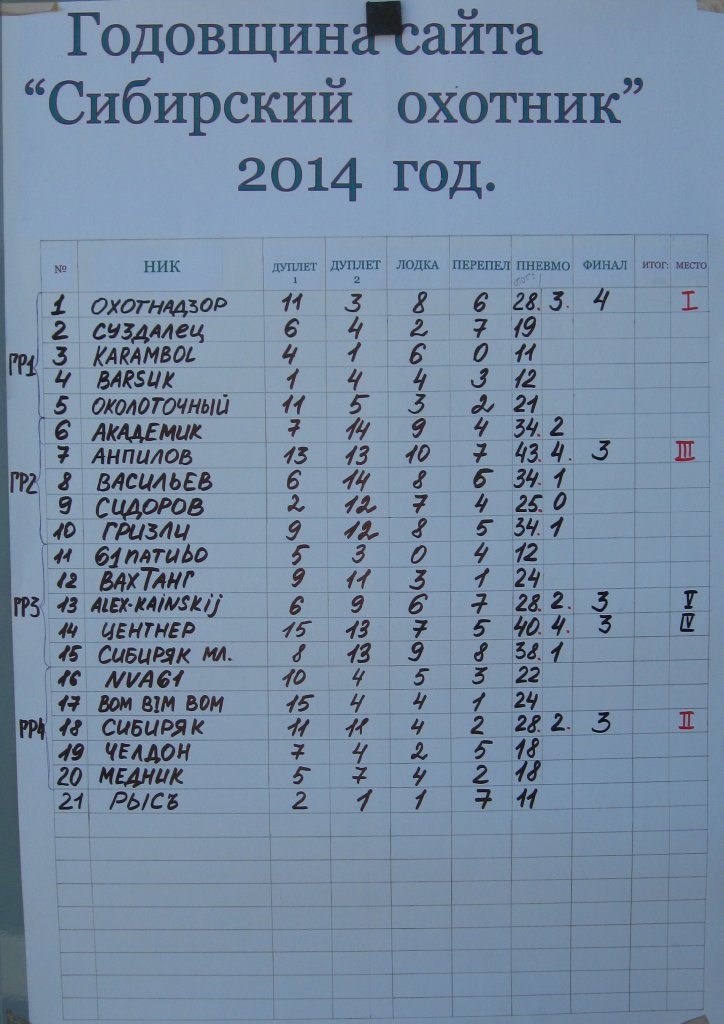 Годовщина сайта
“Сибирский охотник”
2014 год.
№ НИК ДУПЛЕТ 1 ДУПЛЕТ 2 ЛОДКА ПЕРЕПЕЛ ПНЕВМО ФИНАЛ ИТОГ: МЕСТО
ГР1
1 ОХОТНАДЗОР 11 3 8 6 28. 3. 4 I
2 СУЗДАЛЕЦ 6 4 2 7 19
3 KARAMBOL 4 1 6 0 11
4 BARSUK 1 4 4 3 12
5 ОКОЛОТОЧНЫЙ 11 5 3 2 21
ГР2
6 АКАДЕМИК 7 14 9 4 34. 2
7 АНПИЛОВ 13 13 10 7 43. 4. 3 III
8 ВАСИЛЬЕВ 6 14 8 6 34. 1
9 СИДОРОВ 2 12 7 4 25. 0
10 ГРИЗЛИ 9 12 8 5 34. 1
ГР3
11 61ПАТИВО 5 3 0 4 12
12 ВАХТАНГ 9 11 3 1 24
13 ALEX-KAINSKij 6 9 6 7 28. 2. 3 V
14 ЦЕНТНЕР 15 13 7 5 40. 4. 3 IV
15 СИБИРЯК МЛ. 8 13 9 8 38. 1
ГР4
16 NVA61 10 4 5 3 22
17 BOM BIM BOM 15 4 4 1 24
18 СИБИРЯК 11 11 4 2 28. 2. 3 II
19 ЧЕЛДОН 7 4 2 5 18
20 МЕДНИК 5 7 4 2 18
21 РЫСЪ 2 1 1 7 11